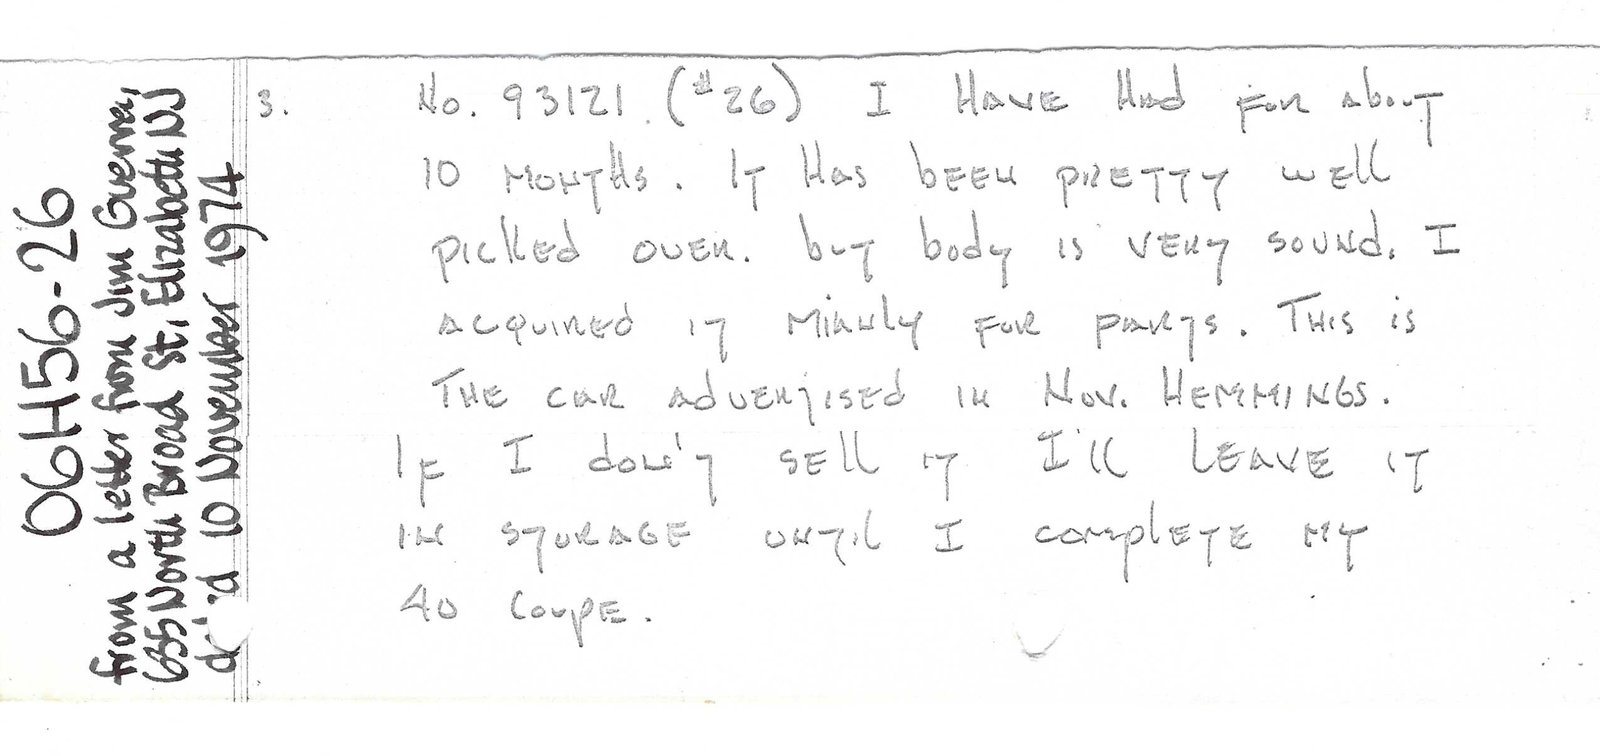 06H56-26
from a letter from Jim Guerra,
655 North Broad St, Elizabeth NJ
10 November 1974
3. No. 93121. (#26) I HAVE Had FOR about
10 MONTHS. IT Has been PRETTY well
picked over. but body is very sound. I
acquired it mianly for parts. This is
THE car advertised in Nov. HEMMINGS.
If I don't sell it I'll LEAVE it
IN STORAGE until I complete my
40 Coupe.